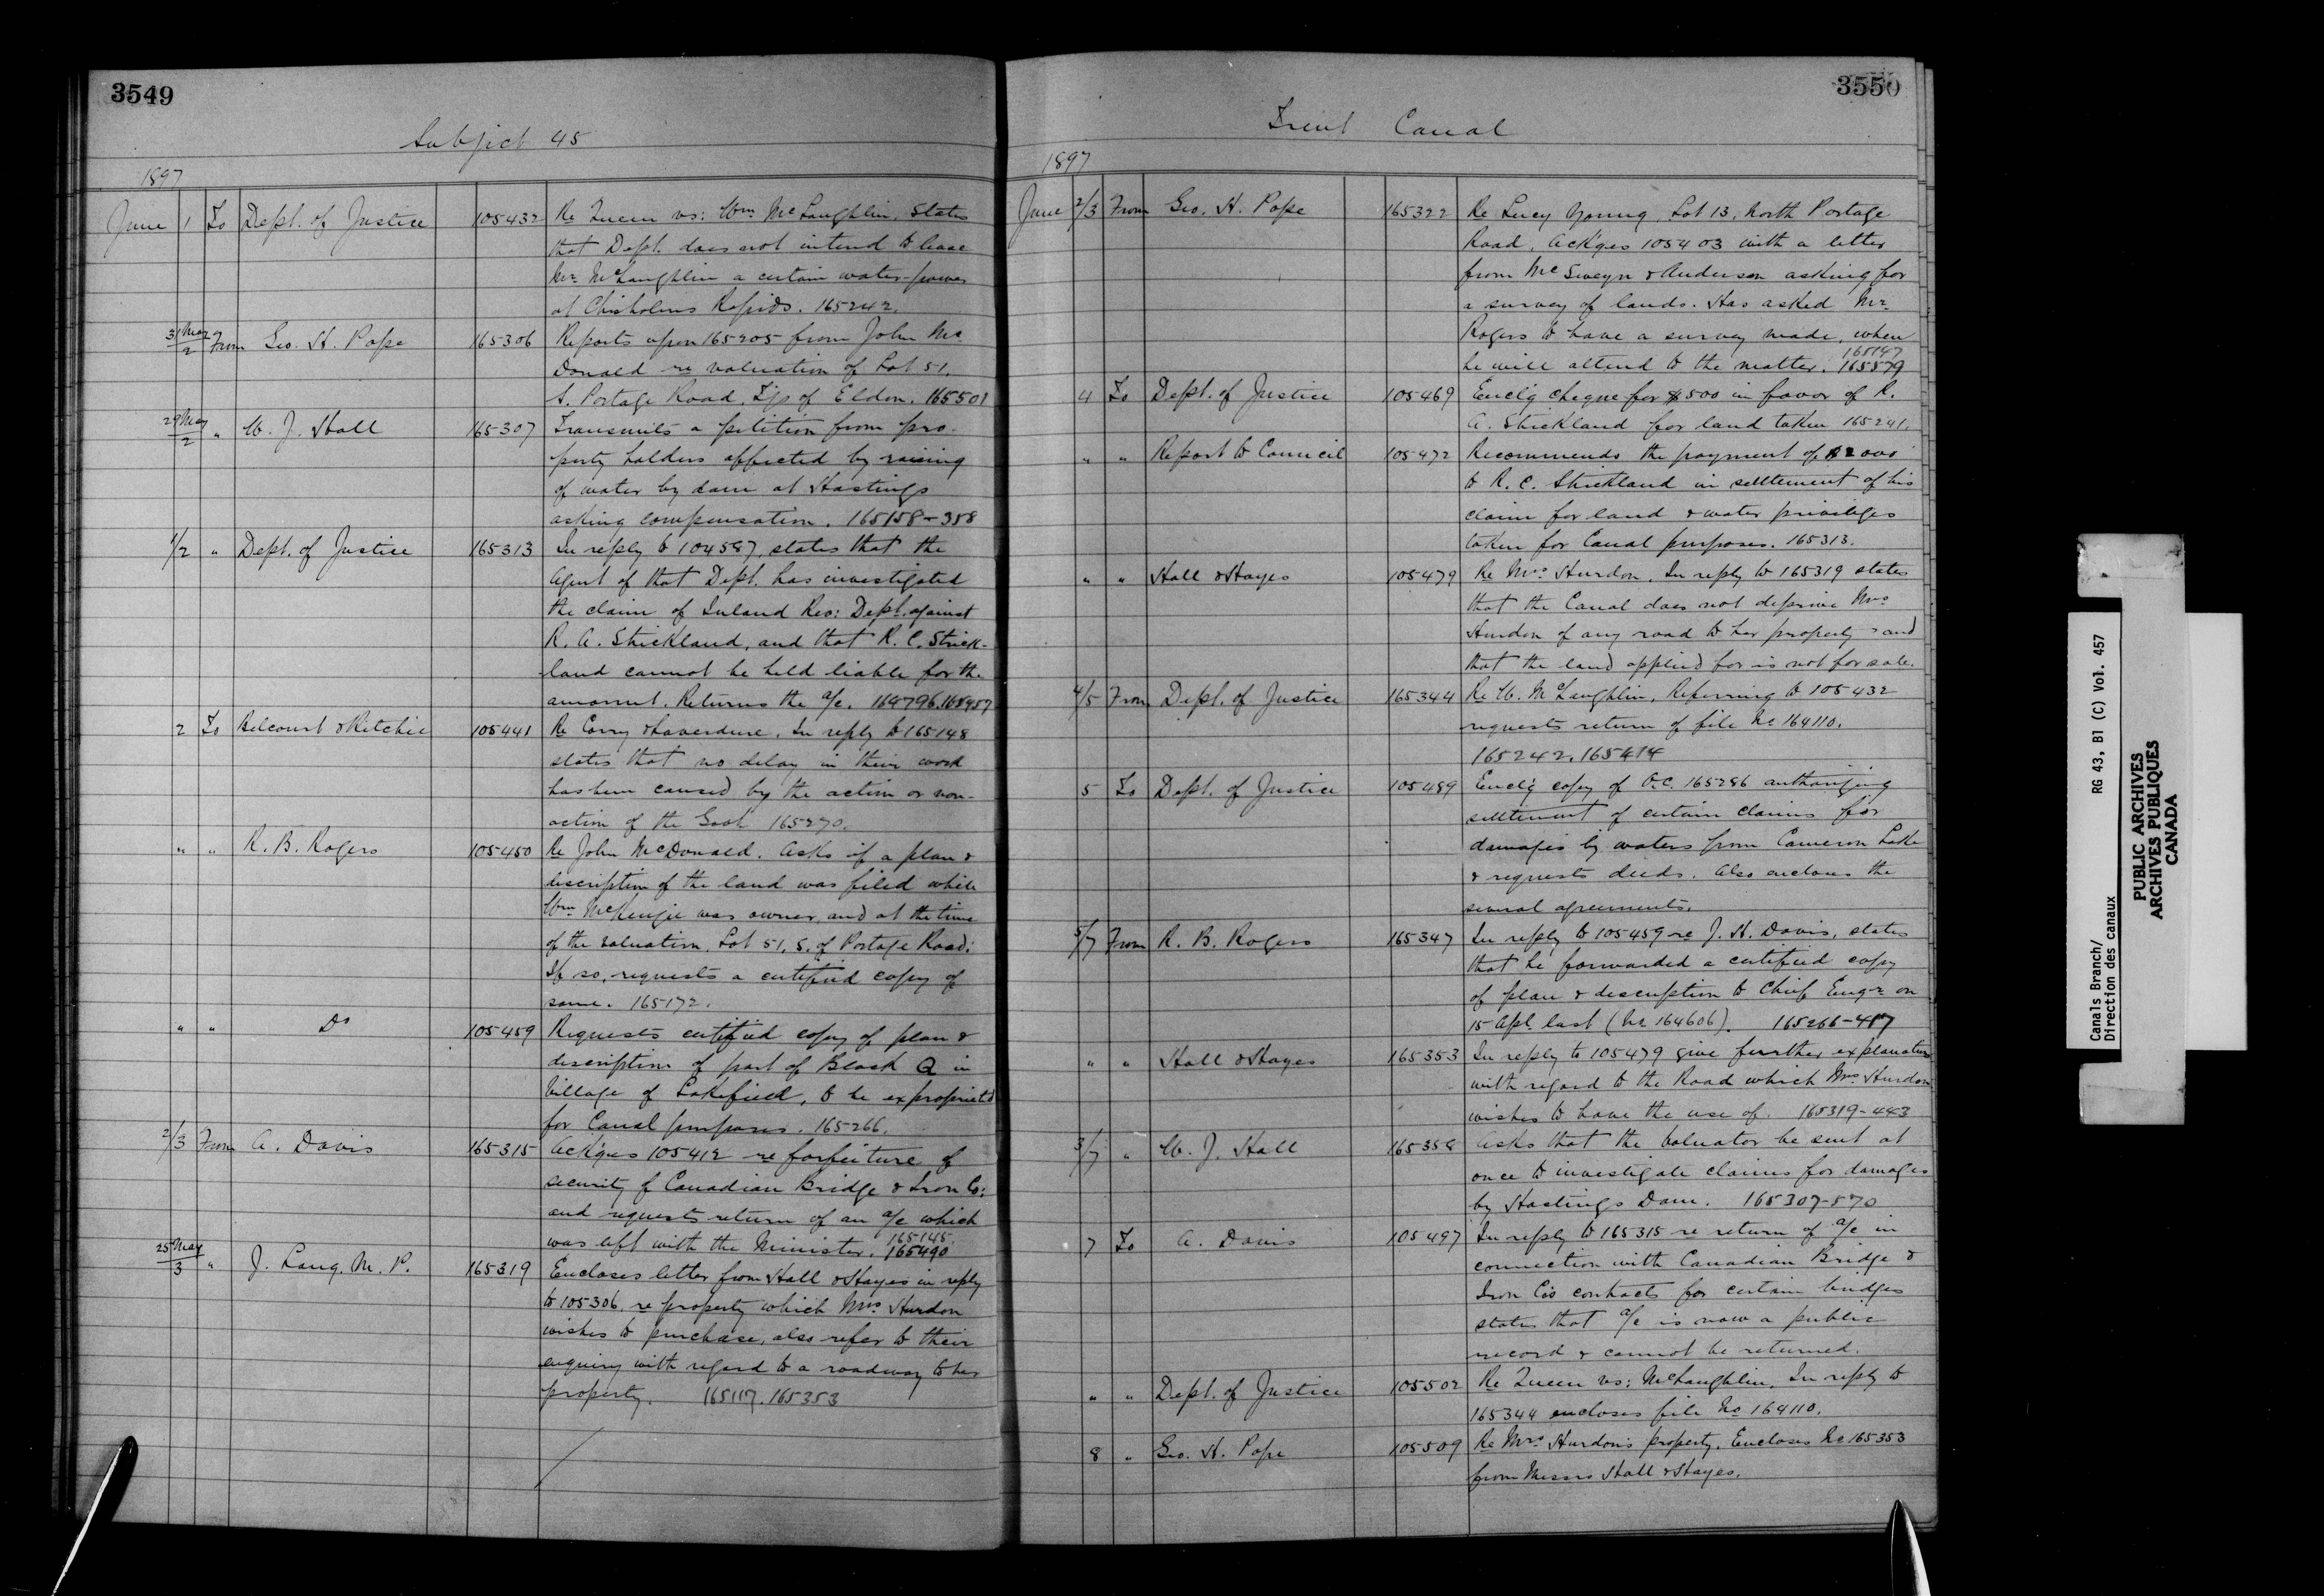 3549
Subject 45
1897
June 1 To Dept. of Justice 105432 Re Queen vs: Wm McLaughlin, States
that Dept. does not intend to lease
Mr. McLaughlin a certain water-power
at Chisholms Rapids. 165242.
31 May/2 From Geo. H. Pope 165306 Reports upon 165205 from John Mc
Donald re valuation of Lot 51.
S. Portage Road, Tp of Eldon. 165501
29 May/2 " W. J. Hall 165307 Transmits a petition from pro-
perty holders affected by raising
of water by dam at Hastings
asking compensation. 165158-358
1/2 " Dept. of Justice 165313 In reply to 104587, states that the
Agent of that Dept. has investigated
the claim of Inland Rev: Dept. against
R. A. Strickland, and that R. C. Strick-
land cannot be held liable for the
amount. Returns the a/c. 164796.
2 To Belcourt & Ritchie 105441 Re Corry & Laverdure. In reply to 165148
states that no delay in their work
has been caused by the action or non-
action of the Govt. 165270.
" " R. B. Rogers 105450 Re John McDonald. Asks if a plan &
description of the land was filed while
Wm McKenzie was owner, and at the time
of the valuation. Lot 51, S. of Portage Road:
If so, requests a certified copy of
same. 165172.
" " Do 105459 Requests certified copy of plan &
description of part of Block Q in
Village of Lakefield, to be expropriated
for Canal purposes. 165266.
2/3 From A. Davis 165315 Ack'ges 105412 re forfeiture of
security of Canadian Bridge & Iron Co:
and requests return of an a/c which
was left with the Minister. 165145. 165490
25 May/3 " J. Lang. M. P. 165319 Encloses letter from Hall & Hayes in reply
to 105306. re property which Mrs Hurdon
wishes to purchase, also refer to their
enquiry with regard to a roadway to her
property. 165117. 165353
3550
Trent Canal
1897
June 2/3 From Geo. H. Pope 165322 Re Lucy Young, Lot 13, North Portage
Road, Ack'ges 105403 with a letter
from McSweyn & Anderson asking for
a survey of lands. Has asked Mr.
Rogers to have a survey made, when
he will attend to the matter. 165147 165579
4 To Dept. of Justice 105469 Encl'g cheque for $500 in favor of R.
A. Strickland for land taken 165241.
" " Report to Council 105472 Recommends the payment of $2000
to R. C. Strickland in settlement of his
claim for land & water privileges
taken for Canal purposes. 165313.
" " Hall & Hayes 105479 Re Mrs Hurdon. In reply to 165319 states
that the Canal does not deprive Mrs
Hurdon of any road to her property and
that the land applied for is not for sale.
4/5 From Dept. of Justice 165344 Re W. McLaughlin, Referring to 105432
requests return of file No 164110.
165242. 165414
5 To Dept. of Justice 105489 Encl'g copy of O.C. 165286 authorizing
settlement of certain claims for
damages by waters from Cameron Lake
& requests deeds. Also encloses the
several agreements.
5/7 From R. B. Rogers 165347 In reply to 105459 re J. H. Davis, states
that he forwarded a certified copy
of plan & description to Chief Engr on
15 Apl. last (No 164606). 165266-417
" " Hall & Hayes 165353 In reply to 105479 give further explanation
with regard to the Road which Mrs Hurdon
wishes to have the use of. 165319-443
3/7 " W. J. Hall 165358 Asks that the Valuator be sent at
once to investigate claims for damages
by Hastings Dam. 165307-570
7 To A. Davis 105497 In reply to 165315 re return of a/c in
connection with Canadian Bridge &
Iron Co's contracts for certain bridges
states that a/c is now a public
record & cannot be returned.
" " Dept. of Justice 105502 Re Queen vs: McLaughlin. In reply to
165344 encloses file No 164110.
8 " Geo. H. Pope 105509 Re Mrs Hurdon's property. Encloses No 165353
from Messrs Hall & Hayes.
Canals Branch/
Direction des canaux
RG 43, B1 (C) Vol. 457
PUBLIC ARCHIVES
ARCHIVES PUBLIQUES
CANADA